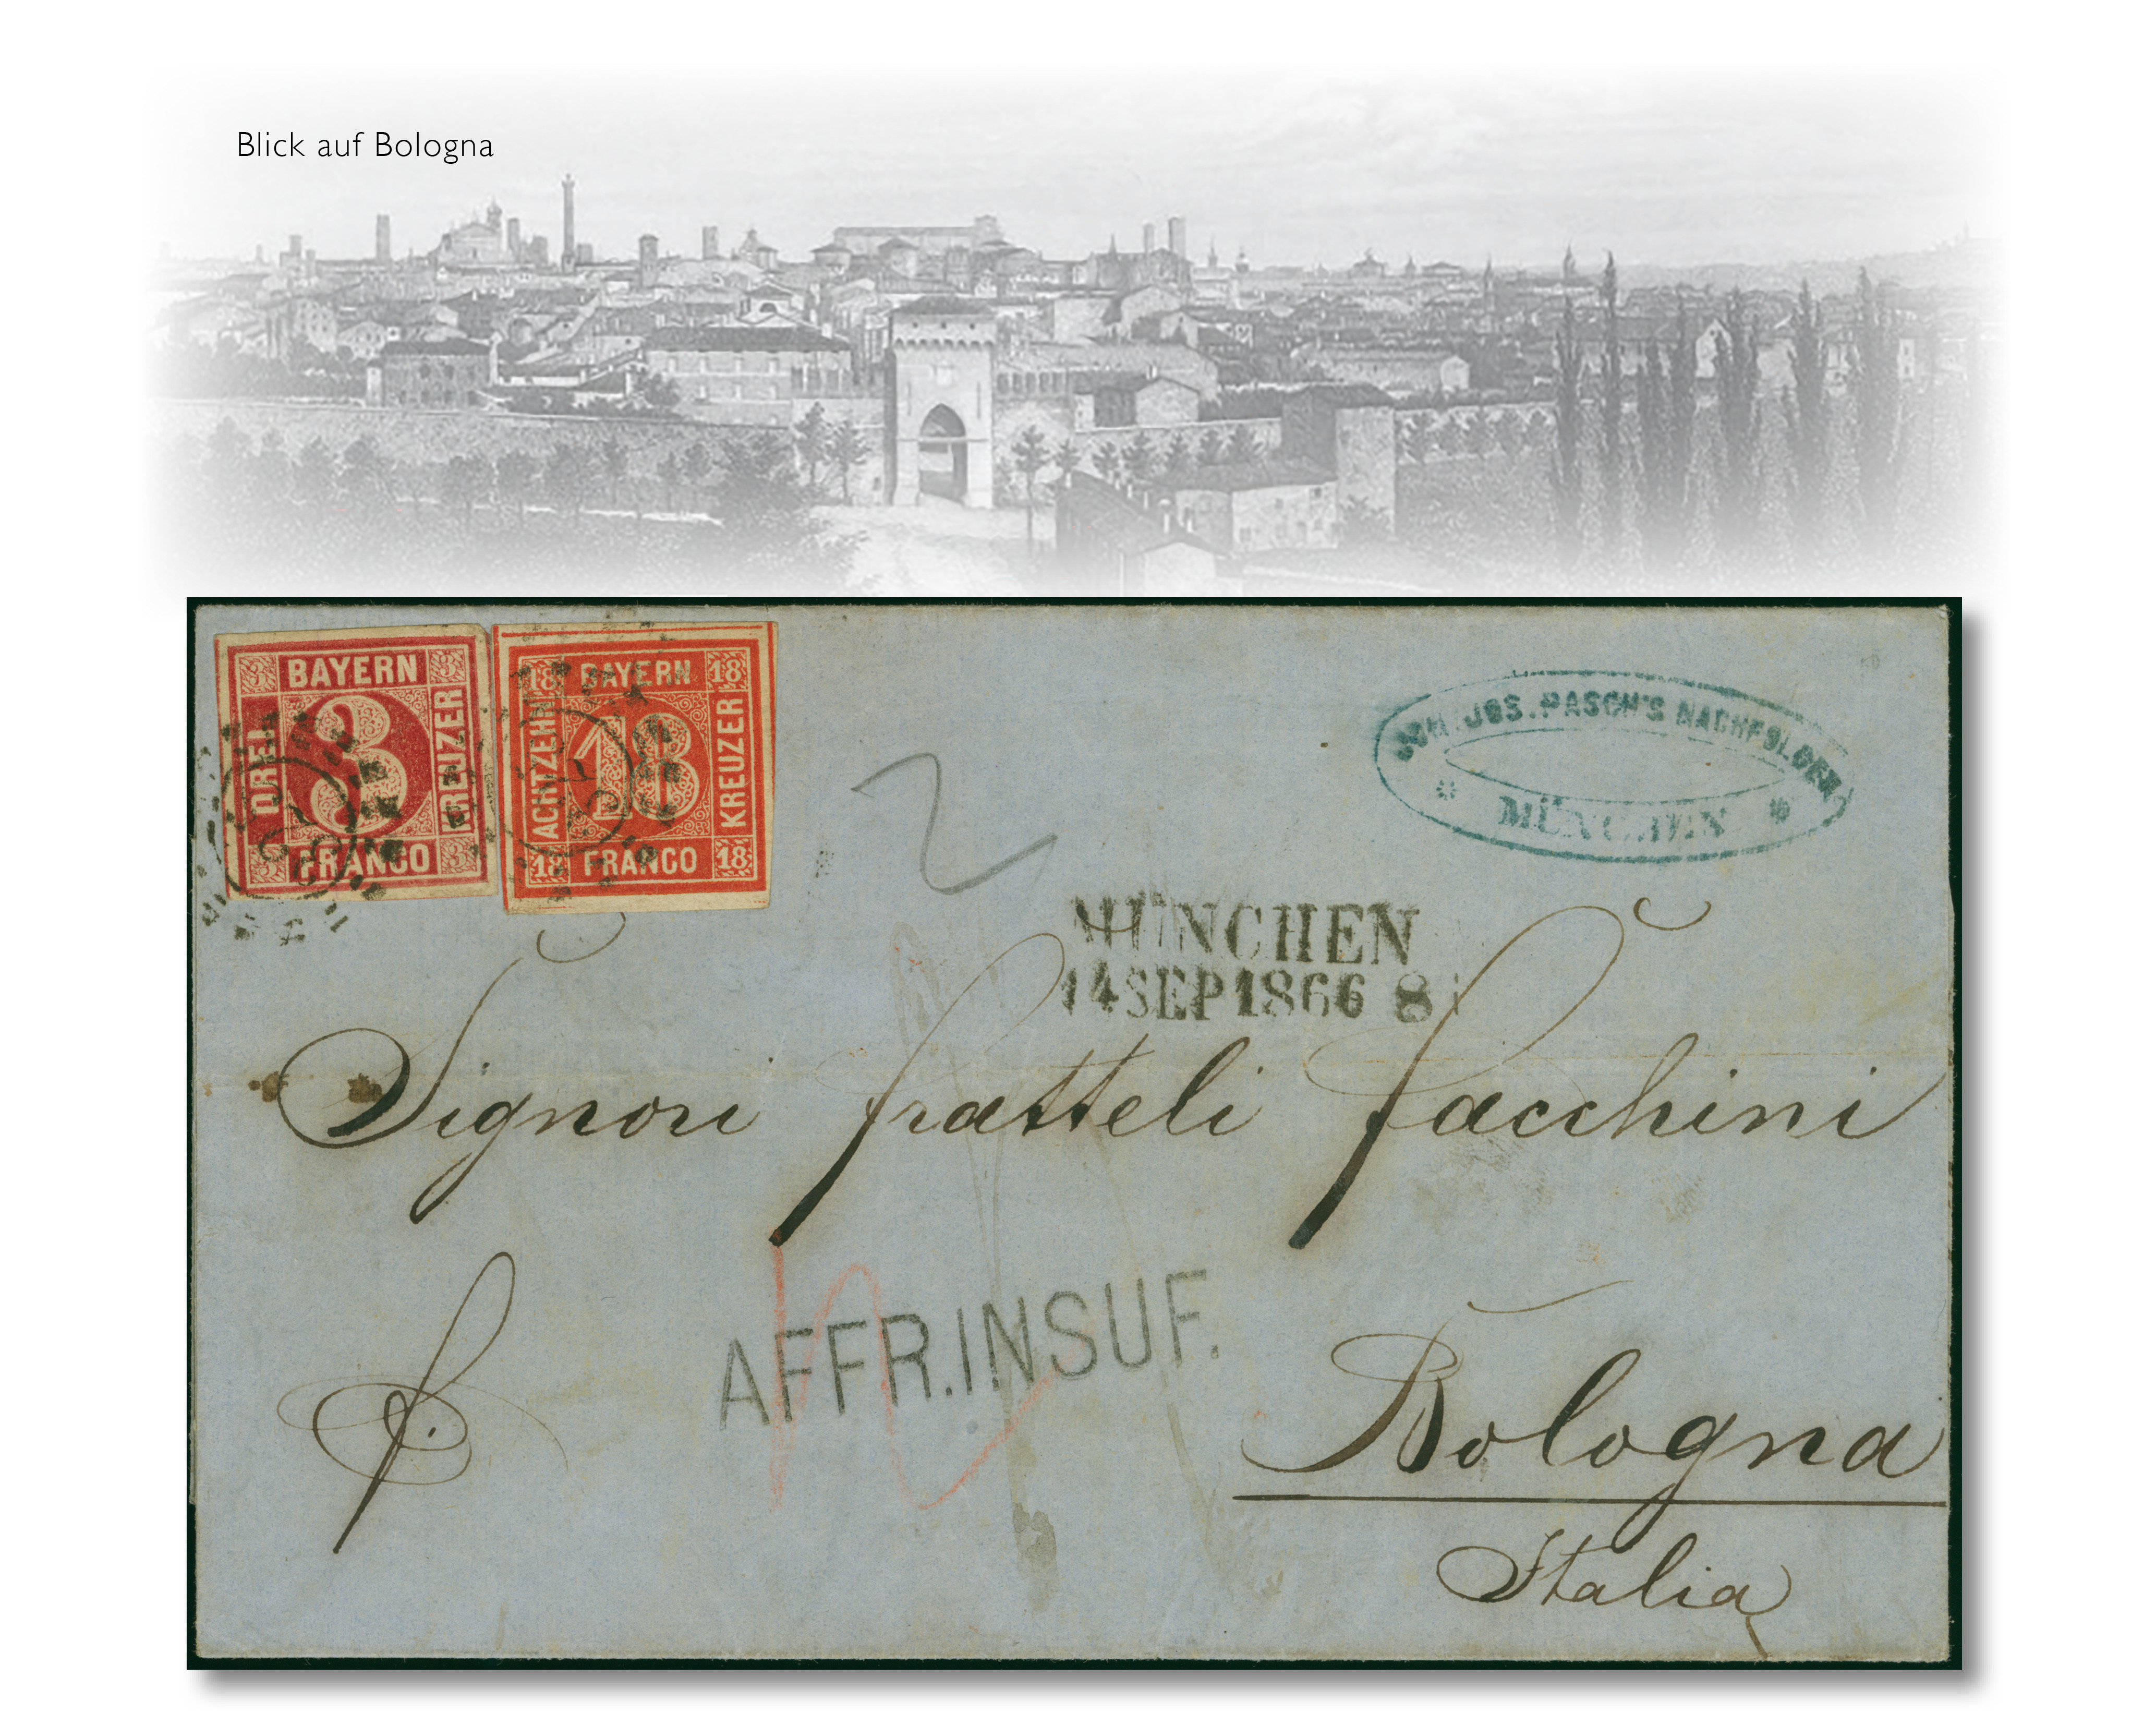 Blick auf Bologna
3 BAYERN 3
DREI 3 KREUZER
3 FRANCO 3
18 BAYERN 18
ACHTZEHN 18 KREUZER
18 FRANCO 18
JOH. JOS. PASCH'S NACHFOLGER
MÜNCHEN
2
MÜNCHEN
14 SEP 1866 8
Signori fratteli facchini
AFFR.INSUF.
Bologna
Italia